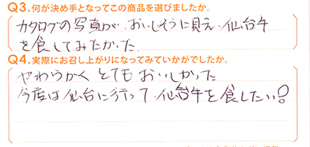 Q3.何が決め手となってこの商品を選びましたか。
カタログの写真がおいしそうに見え、仙台牛
を食してみたかった
Q4.実際にお召し上がりになってみていかがでしたか。
やわらかくとてもおいしかった
今度は仙台に行って仙台牛を食したい?